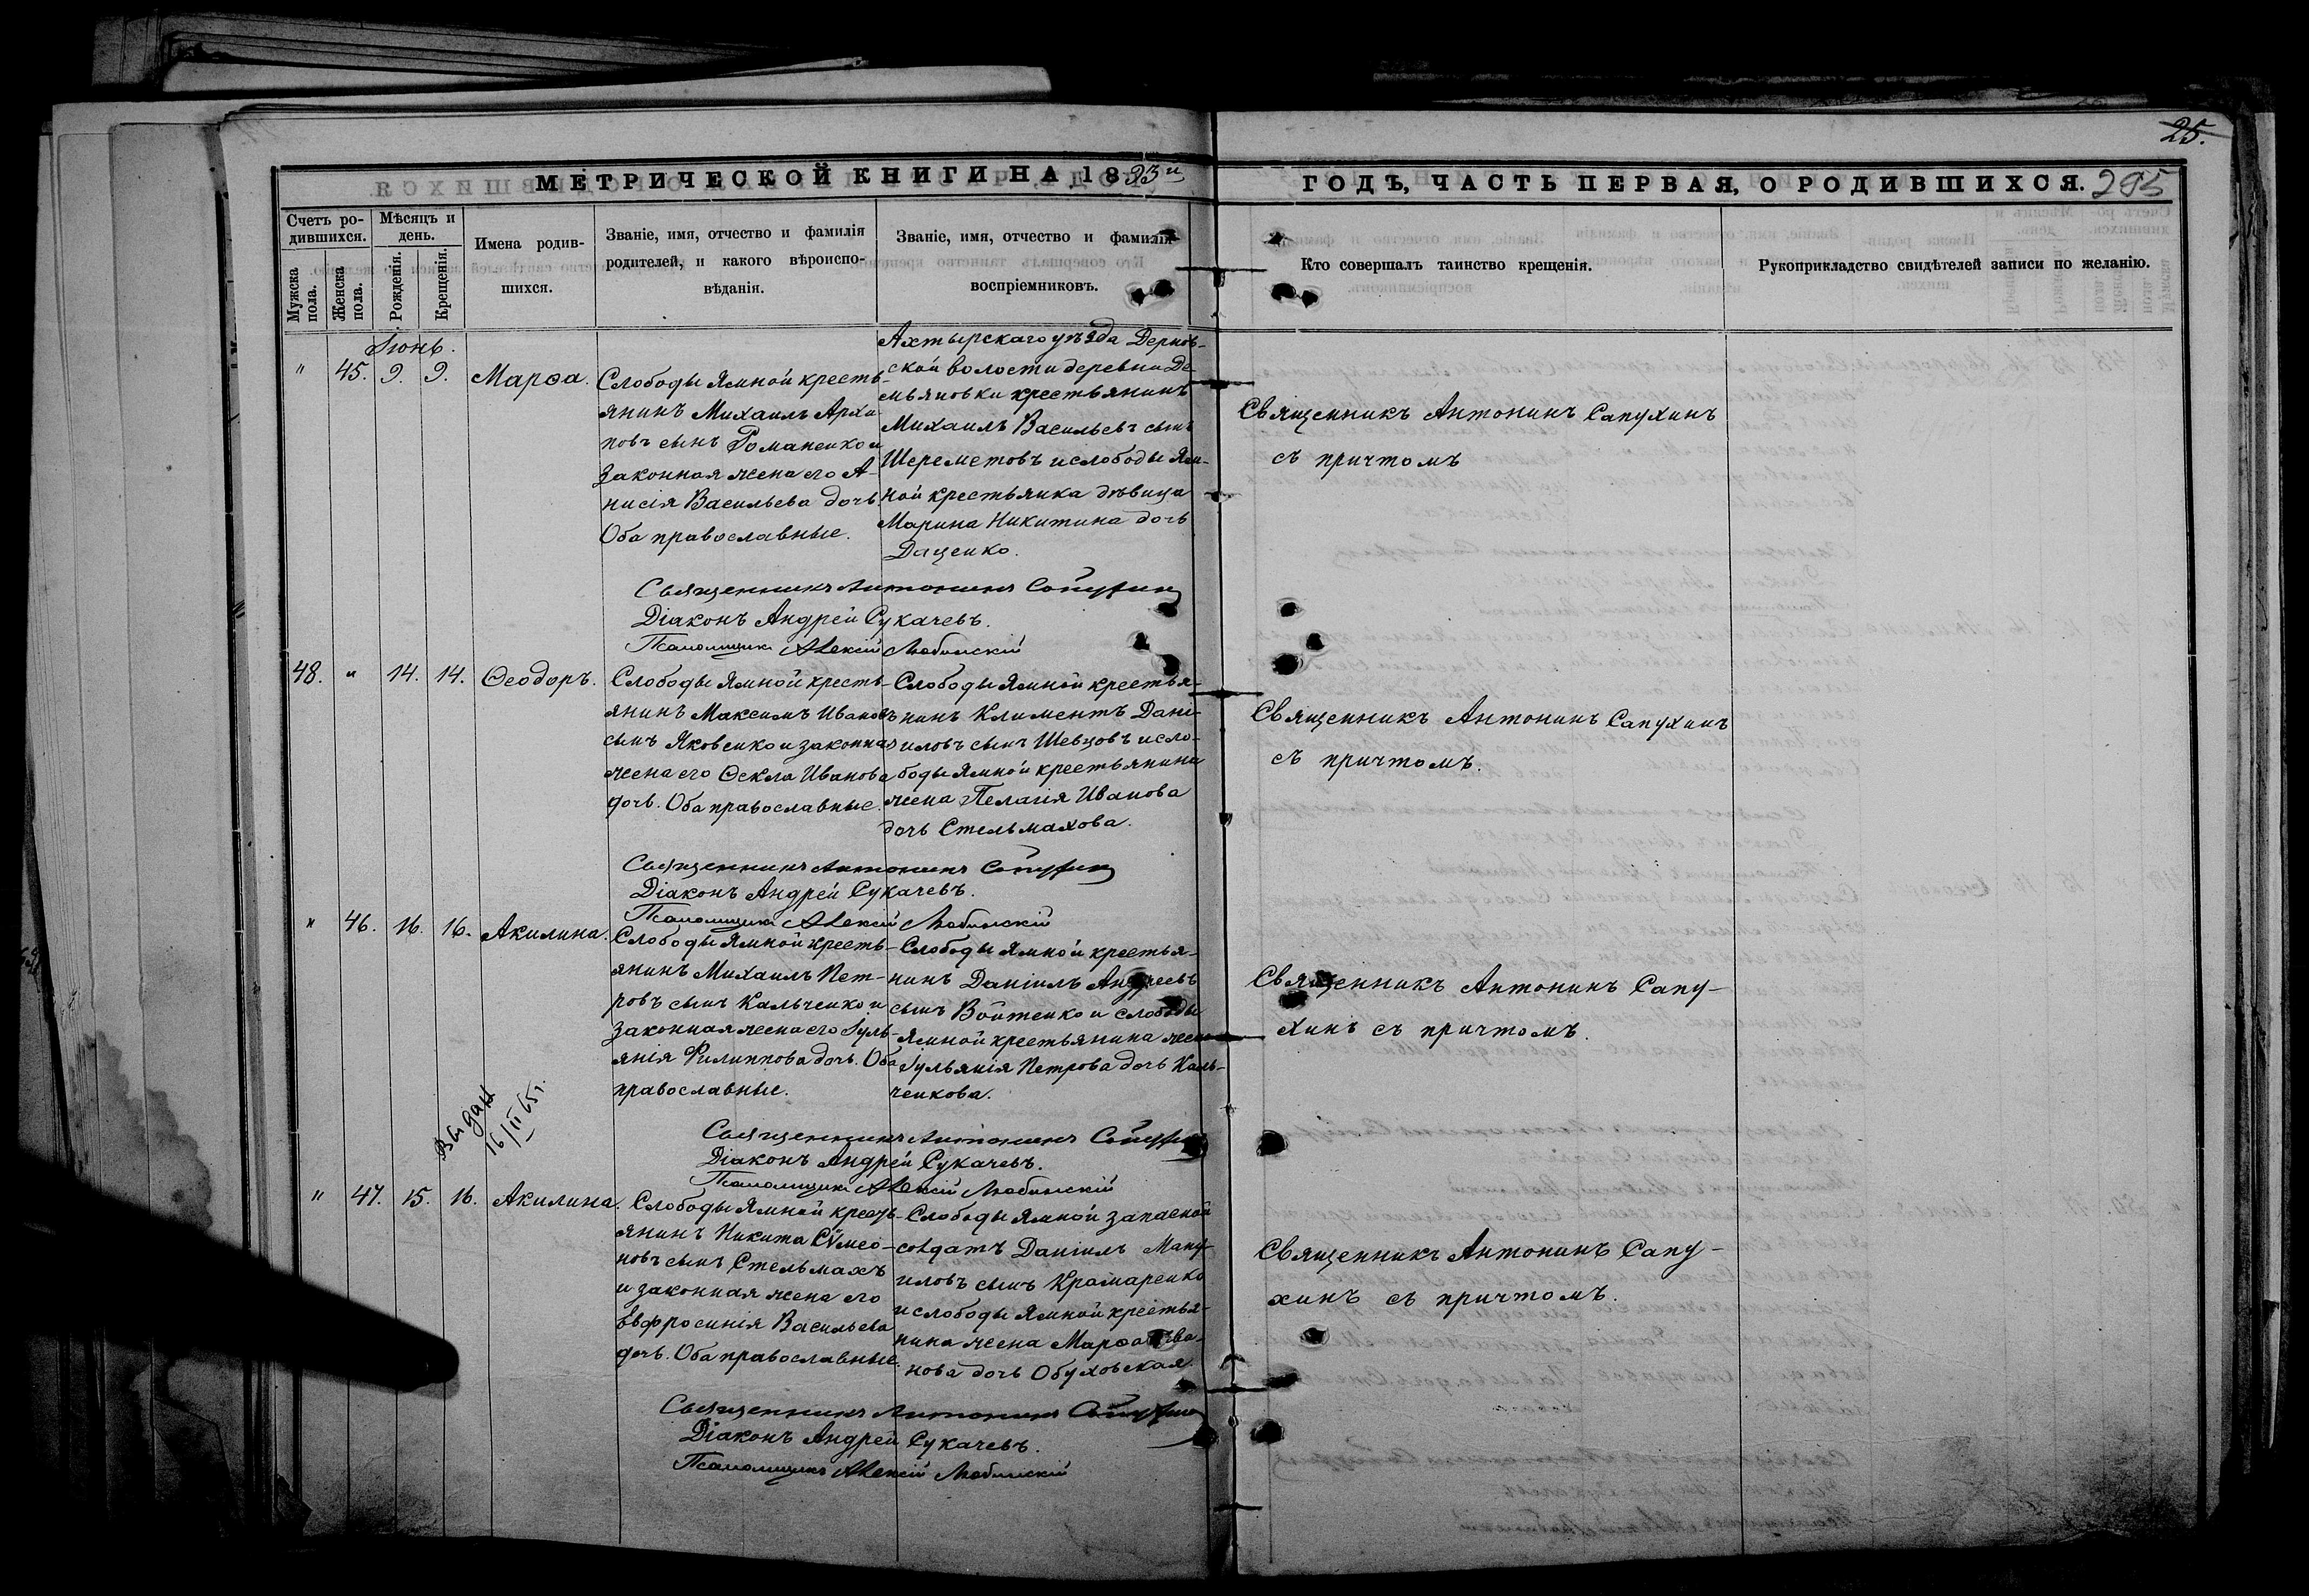 25.
МЕТРИЧЕСКОЙ КНИГИ НА 1893й
ГОДЪ, ЧАСТЬ ПЕРВАЯ, О РОДИВШИХСЯ. 295
Счетъ родившихся.
Мѣсяцъ и день.
Мужска пола.
Женска пола.
Рожденія.
Крещенія.
Имена родившихся.
Званіе, имя, отчество и фамилія
родителей, и какого вѣроиспо-
вѣданія.
Званіе, имя, отчество и фамилія
воспріемниковъ.
Кто совершалъ таинство крещенія.
Рукоприкладство свидѣтелей записи по желанію.
Іюнь.
" 45. 9. 9. Марѳа.
Слободы Ямной кресть-
янинъ Михаилъ Архи-
повъ сынъ Романенко и
законная жена его А-
нисія Васильева дочь.
Оба православные.
Ахтырскаго уѣзда Дернов-
ской волости деревни Де-
мьяновки крестьянинъ
Михаилъ Васильевъ сынъ
Шереметовъ и слободы Ям-
ной крестьянка дѣвица
Марина Никитина дочь
Даценко.
Священникъ Антонинъ Сапухинъ
съ причтомъ
Священникъ Антонинъ Сапухинъ
Діаконъ Андрей Сукачевъ.
Псаломщикъ Алексій Любинскій
48. " 14. 14. Ѳеодоръ.
Слободы Ямной кресть-
янинъ Максимъ Ивановъ
сынъ Яковенко и законная
жена его Ѳекла Иванова
дочь. Оба православные.
Слободы Ямной крестья-
нинъ Климентъ Дані-
иловъ сынъ Шевцовъ и сло-
боды Ямной крестьянина
жена Пелагія Иванова
дочь Стельмахова.
Священникъ Антонинъ Сапухинъ
съ причтомъ.
Священникъ Антонинъ Сапухинъ
Діаконъ Андрей Сукачевъ.
Псаломщикъ Алексій Любинскій
" 46. 16. 16. Акилина.
Слободы Ямной кресть-
янинъ Михаилъ Пет-
ровъ сынъ Кальченко и
законная жена его Іуль-
янія Филиппова дочь. Оба
православные.
Слободы Ямной крестья-
нинъ Даніилъ Андреевъ
сынъ Войтенко и слободы
Ямной крестьянина жена
Іульянія Петрова дочь Каль-
ченкова.
Священникъ Антонинъ Сапу-
хинъ съ причтомъ.
Выдан
16/II 65 г.
Священникъ Антонинъ Сапухинъ
Діаконъ Андрей Сукачевъ.
Псаломщикъ Алексій Любинскій
" 47. 15. 16. Акилина.
Слободы Ямной кресть-
янинъ Никита Сѵмео-
новъ сынъ Стельмахъ
и законная жена его
Евфросинія Васильева
дочь. Оба православные.
Слободы Ямной запасной
солдатъ Даніилъ Ману-
иловъ сынъ Крамаренко
и слободы Ямной крестья-
нина жена Марѳа Ива-
нова дочь Обуховская.
Священникъ Антонинъ Сапу-
хинъ съ причтомъ.
Священникъ Антонинъ Сапухинъ
Діаконъ Андрей Сукачевъ.
Псаломщикъ Алексій Любинскій